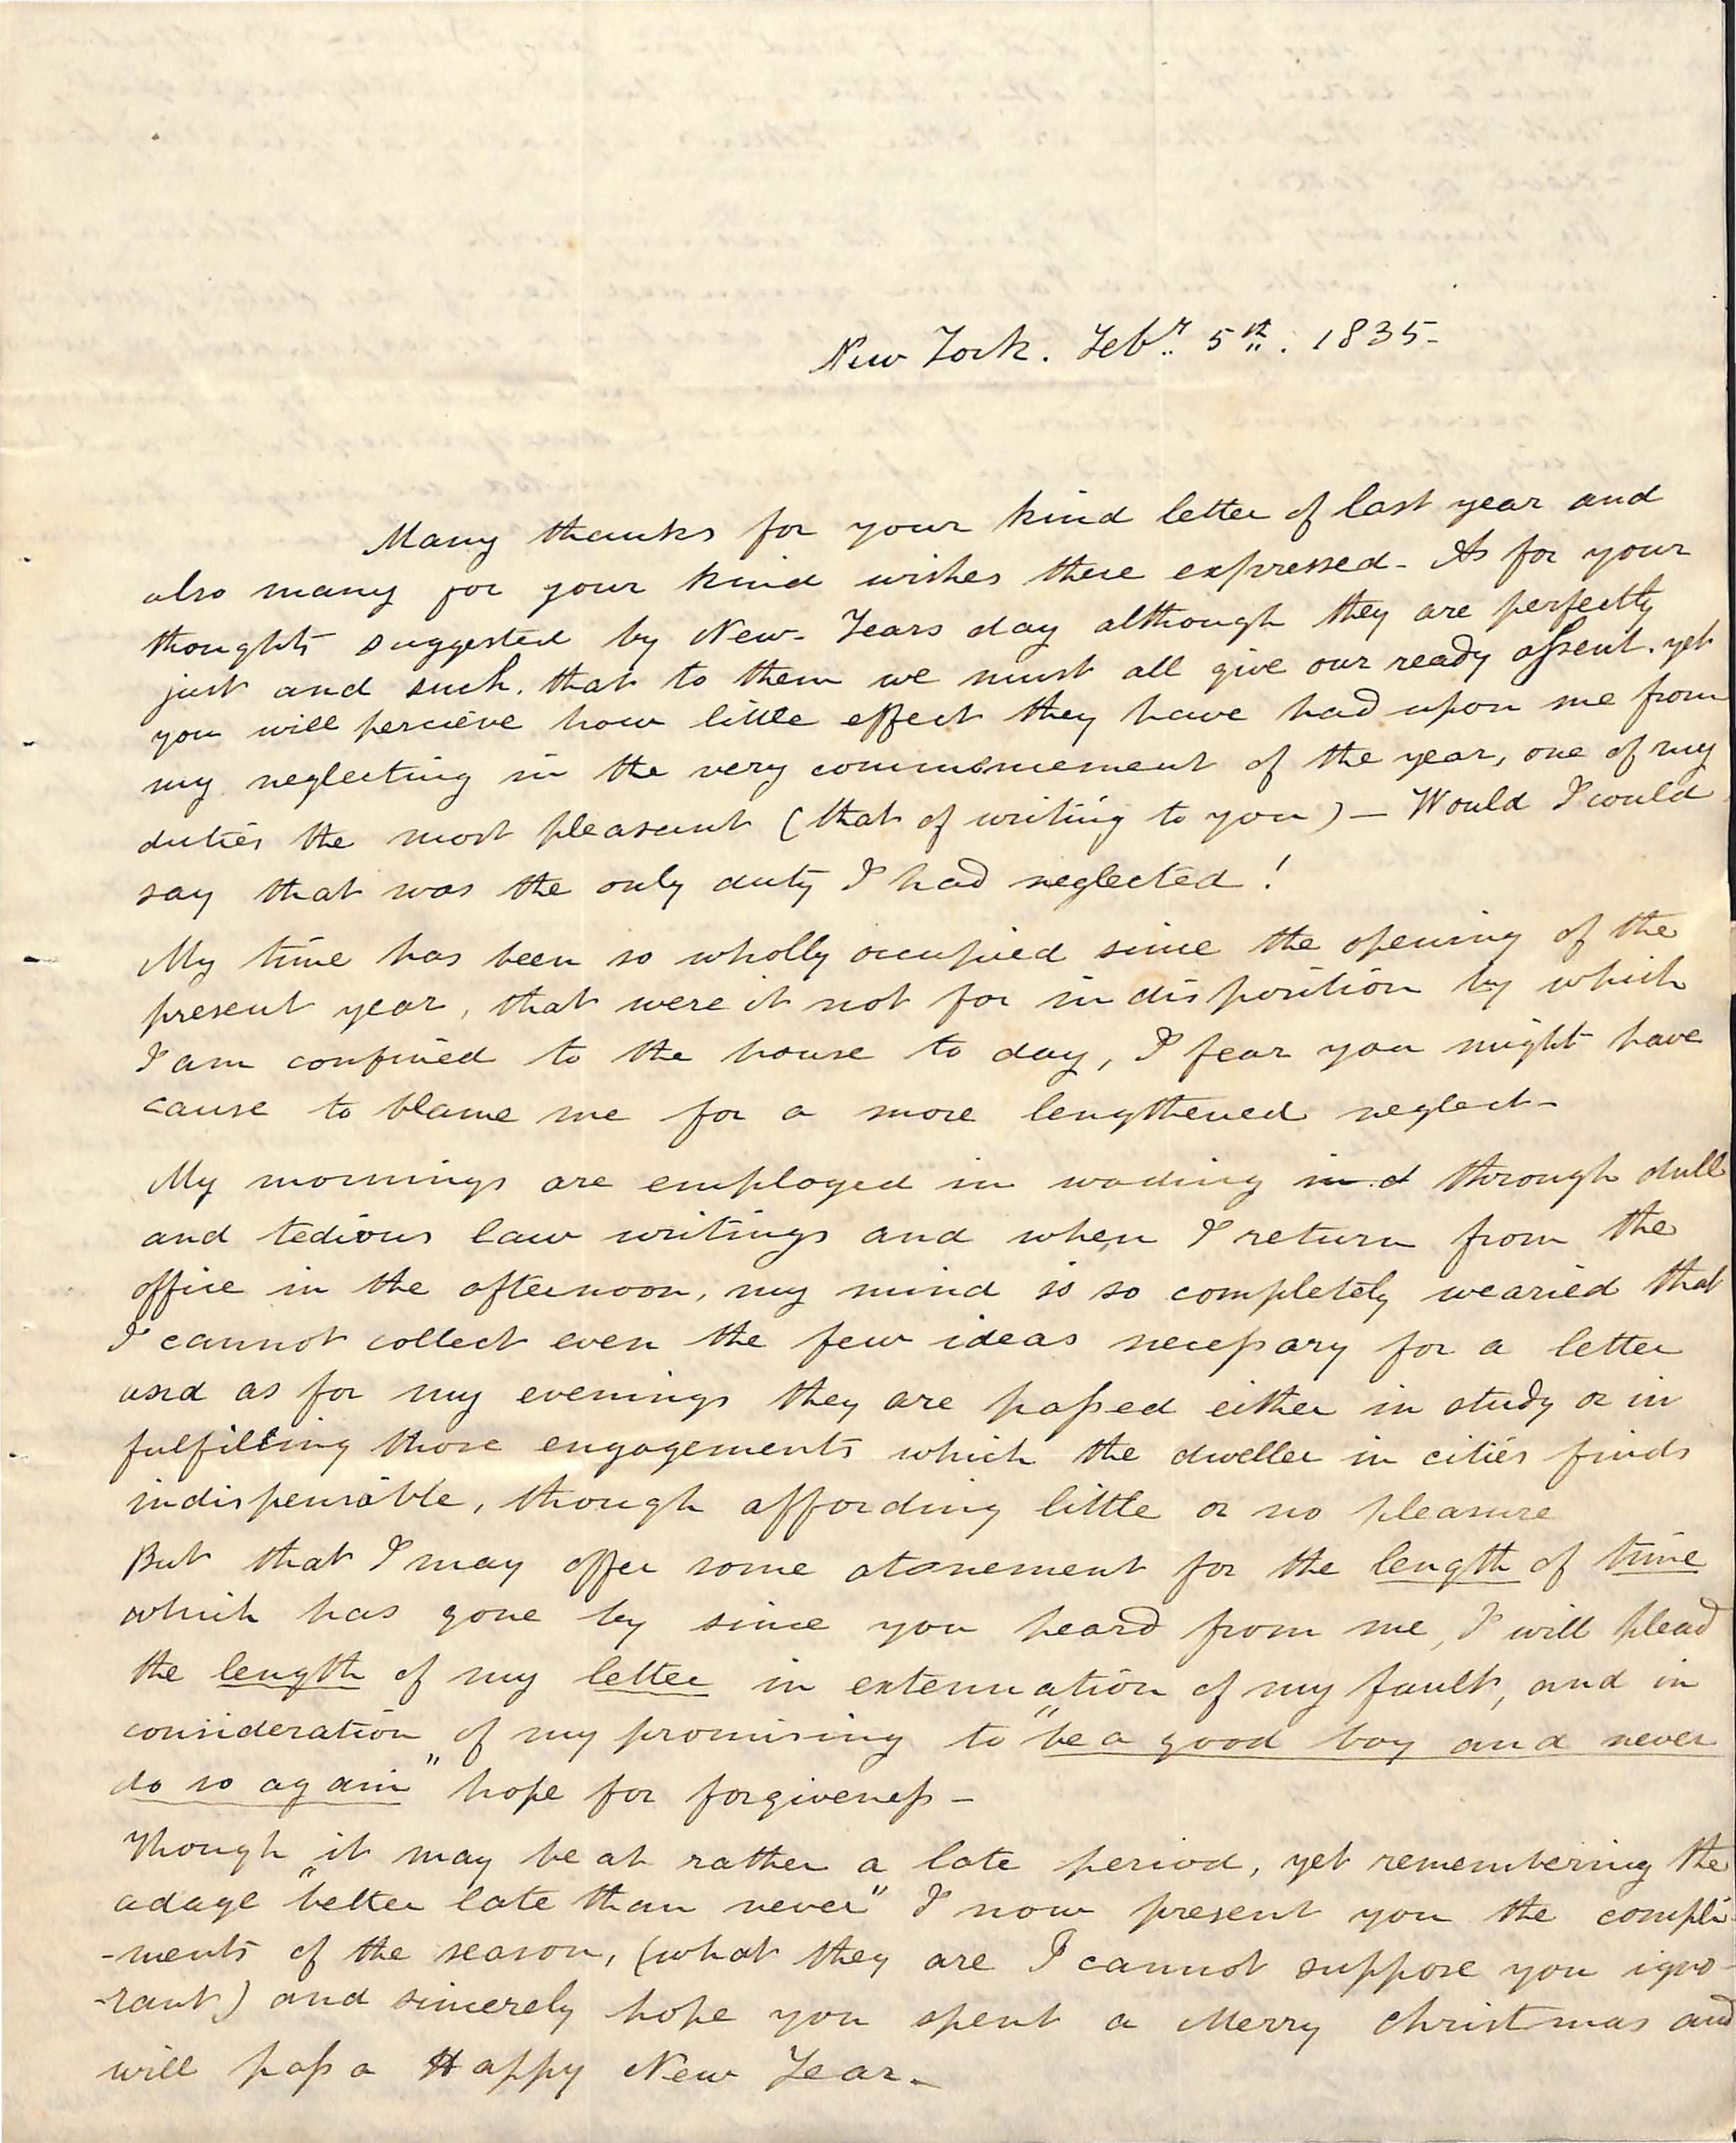 New York. Feb.r 5th. 1835-
Many thanks for your kind letter of last year and
also many for your kind wishes there expressed- As for your
thoughts suggested by New-Years day although they are perfectly
just and such, that to them we must all give our ready assent. yet
you will percieve how little effect they have had upon me from
my neglecting in the very commencement of the year, one of my
duties the most pleasant (that of writing to you) — Would I could
say that was the only duty I had neglected!
My time has been so wholly occupied since the opening of the
present year, that were it not for indisposition by which
I am confined to the house to day, I fear you might have
cause to blame me for a more lengthened neglect-
My mornings are employed in wading through dull
and tedious law writings and when I return from the
office in the afternoon, my mind is so completely wearied that
I cannot collect even the few ideas necessary for a letter
and as for my evenings they are passed either in study or in
fulfilling those engagements which the dweller in cities finds
indispensible, though affording little or no pleasure
But that I may offer some atonement for the length of time
which has gone by since you heard from me, I will plead
the length of my letter in extenuation of my fault, and in
consideration of my promising to "be a good boy and never
do so again" hope for forgiveness-
Though it may be at rather a late period, yet remembering the
adage "better late than never" I now present you the compli-
-ments of the season, (what they are I cannot suppose you igno-
-rant) and sincerely hope you spent a Merry Christmas and
will pass a Happy New Year-